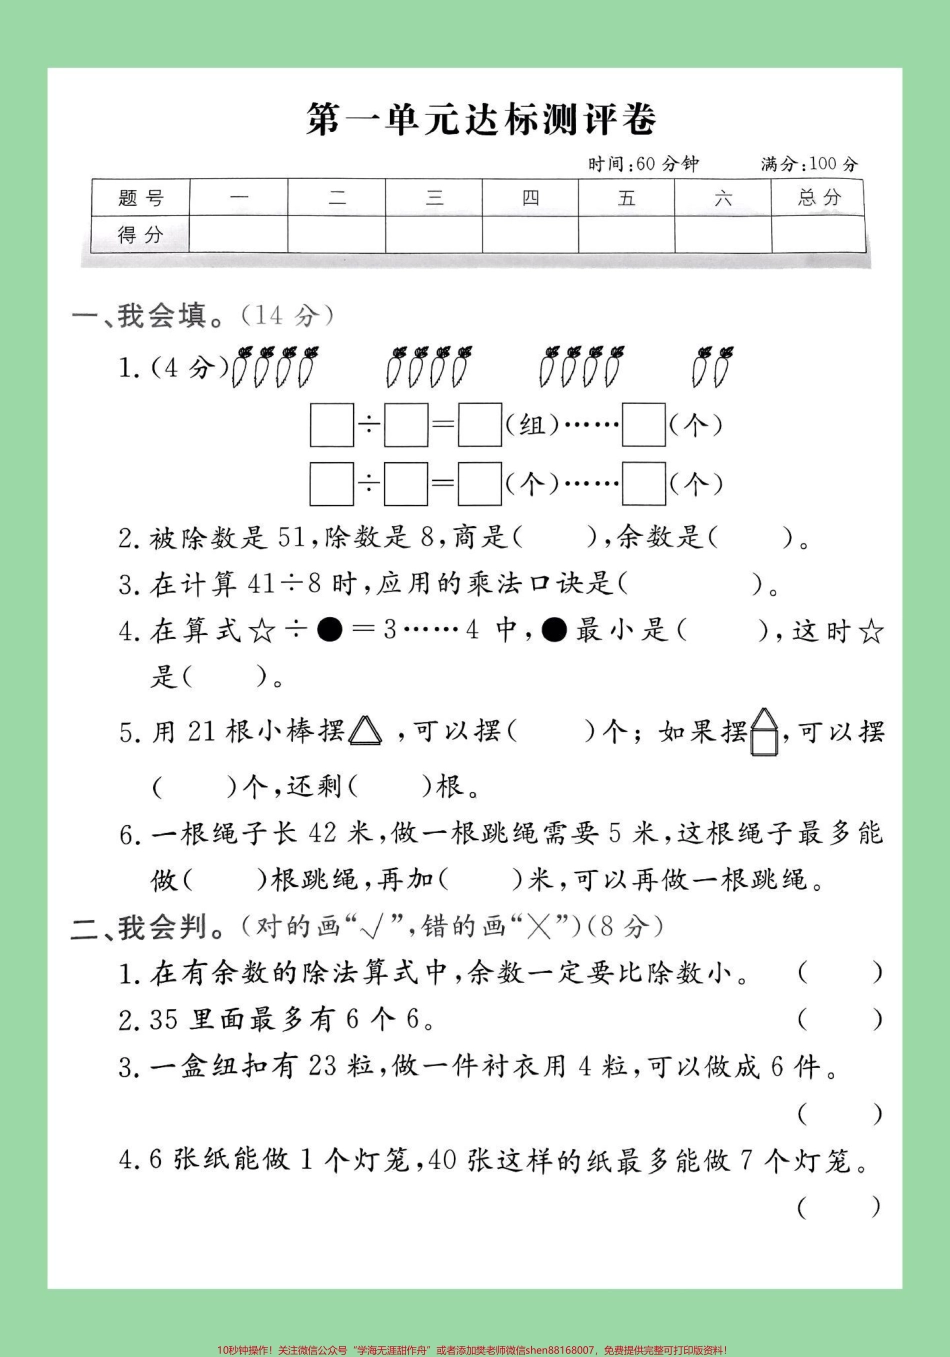 第一单元达标测评卷
时间:60分钟 满分:100分
题号 一 二 三 四 五 六 总分
得分
一、我会填。(14分)
1.(4分)
□÷□=□(组)……□(个)
□÷□=□(个)……□(个)
2.被除数是51,除数是8,商是( ),余数是( )。
3.在计算41÷8时,应用的乘法口诀是( )。
4.在算式☆÷●=3……4中,●最小是( ),这时☆
是( )。
5.用21根小棒摆△,可以摆( )个;如果摆,可以摆
( )个,还剩( )根。
6.一根绳子长42米,做一根跳绳需要5米,这根绳子最多能
做( )根跳绳,再加( )米,可以再做一根跳绳。
二、我会判。(对的画“√”,错的画“╳”)(8分)
1.在有余数的除法算式中,余数一定要比除数小。 ( )
2.35里面最多有6个6。 ( )
3.一盒纽扣有23粒,做一件衬衣用4粒,可以做成6件。
( )
4.6张纸能做1个灯笼,40张这样的纸最多能做7个灯笼。
( )
10秒钟操作!关注微信公众号“学海无涯甜作舟”或者添加樊老师微信shen88168007,免费提供完整可打印版资料!